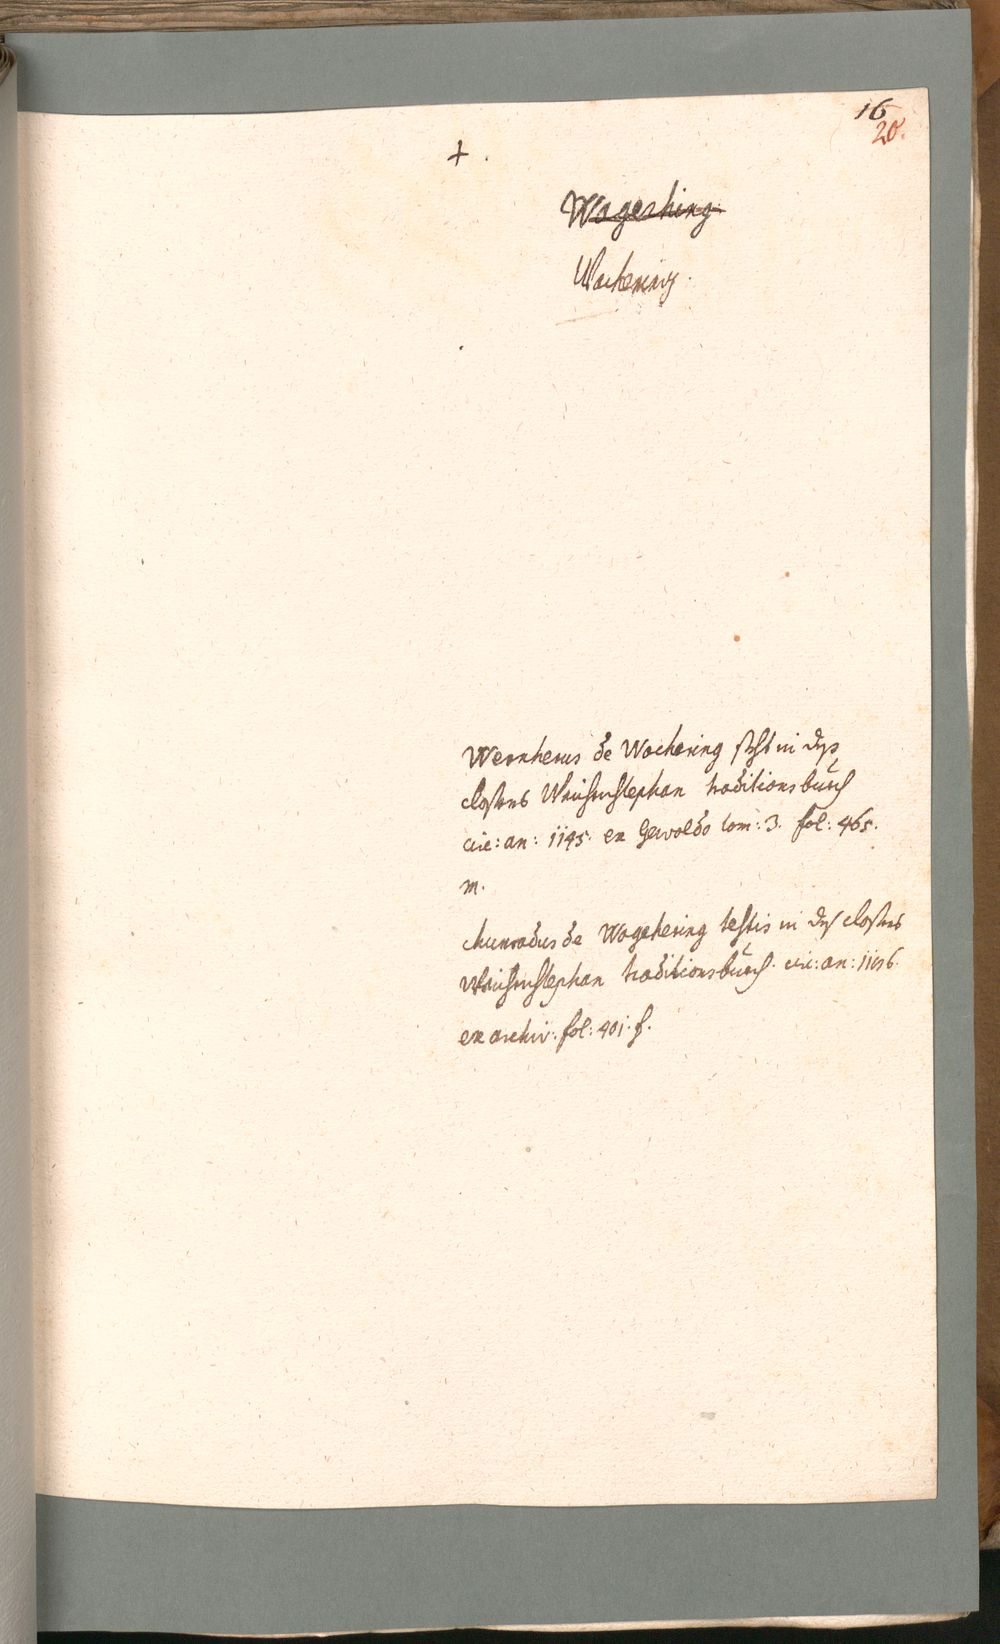 16
20.
+ .
Wagerhing
Wachering.
Wernherus de Wachering steht in deß
closters Weichenstephan traditionsbuch
circ: an: 1145. ex Gewoldo tom: 3. fol: 465.
m.
chunradus de Wagehering testis in deß closters
Weichenstephan traditionsbuch. circ: an: 1156.
ex archiv: fol: 401. f.